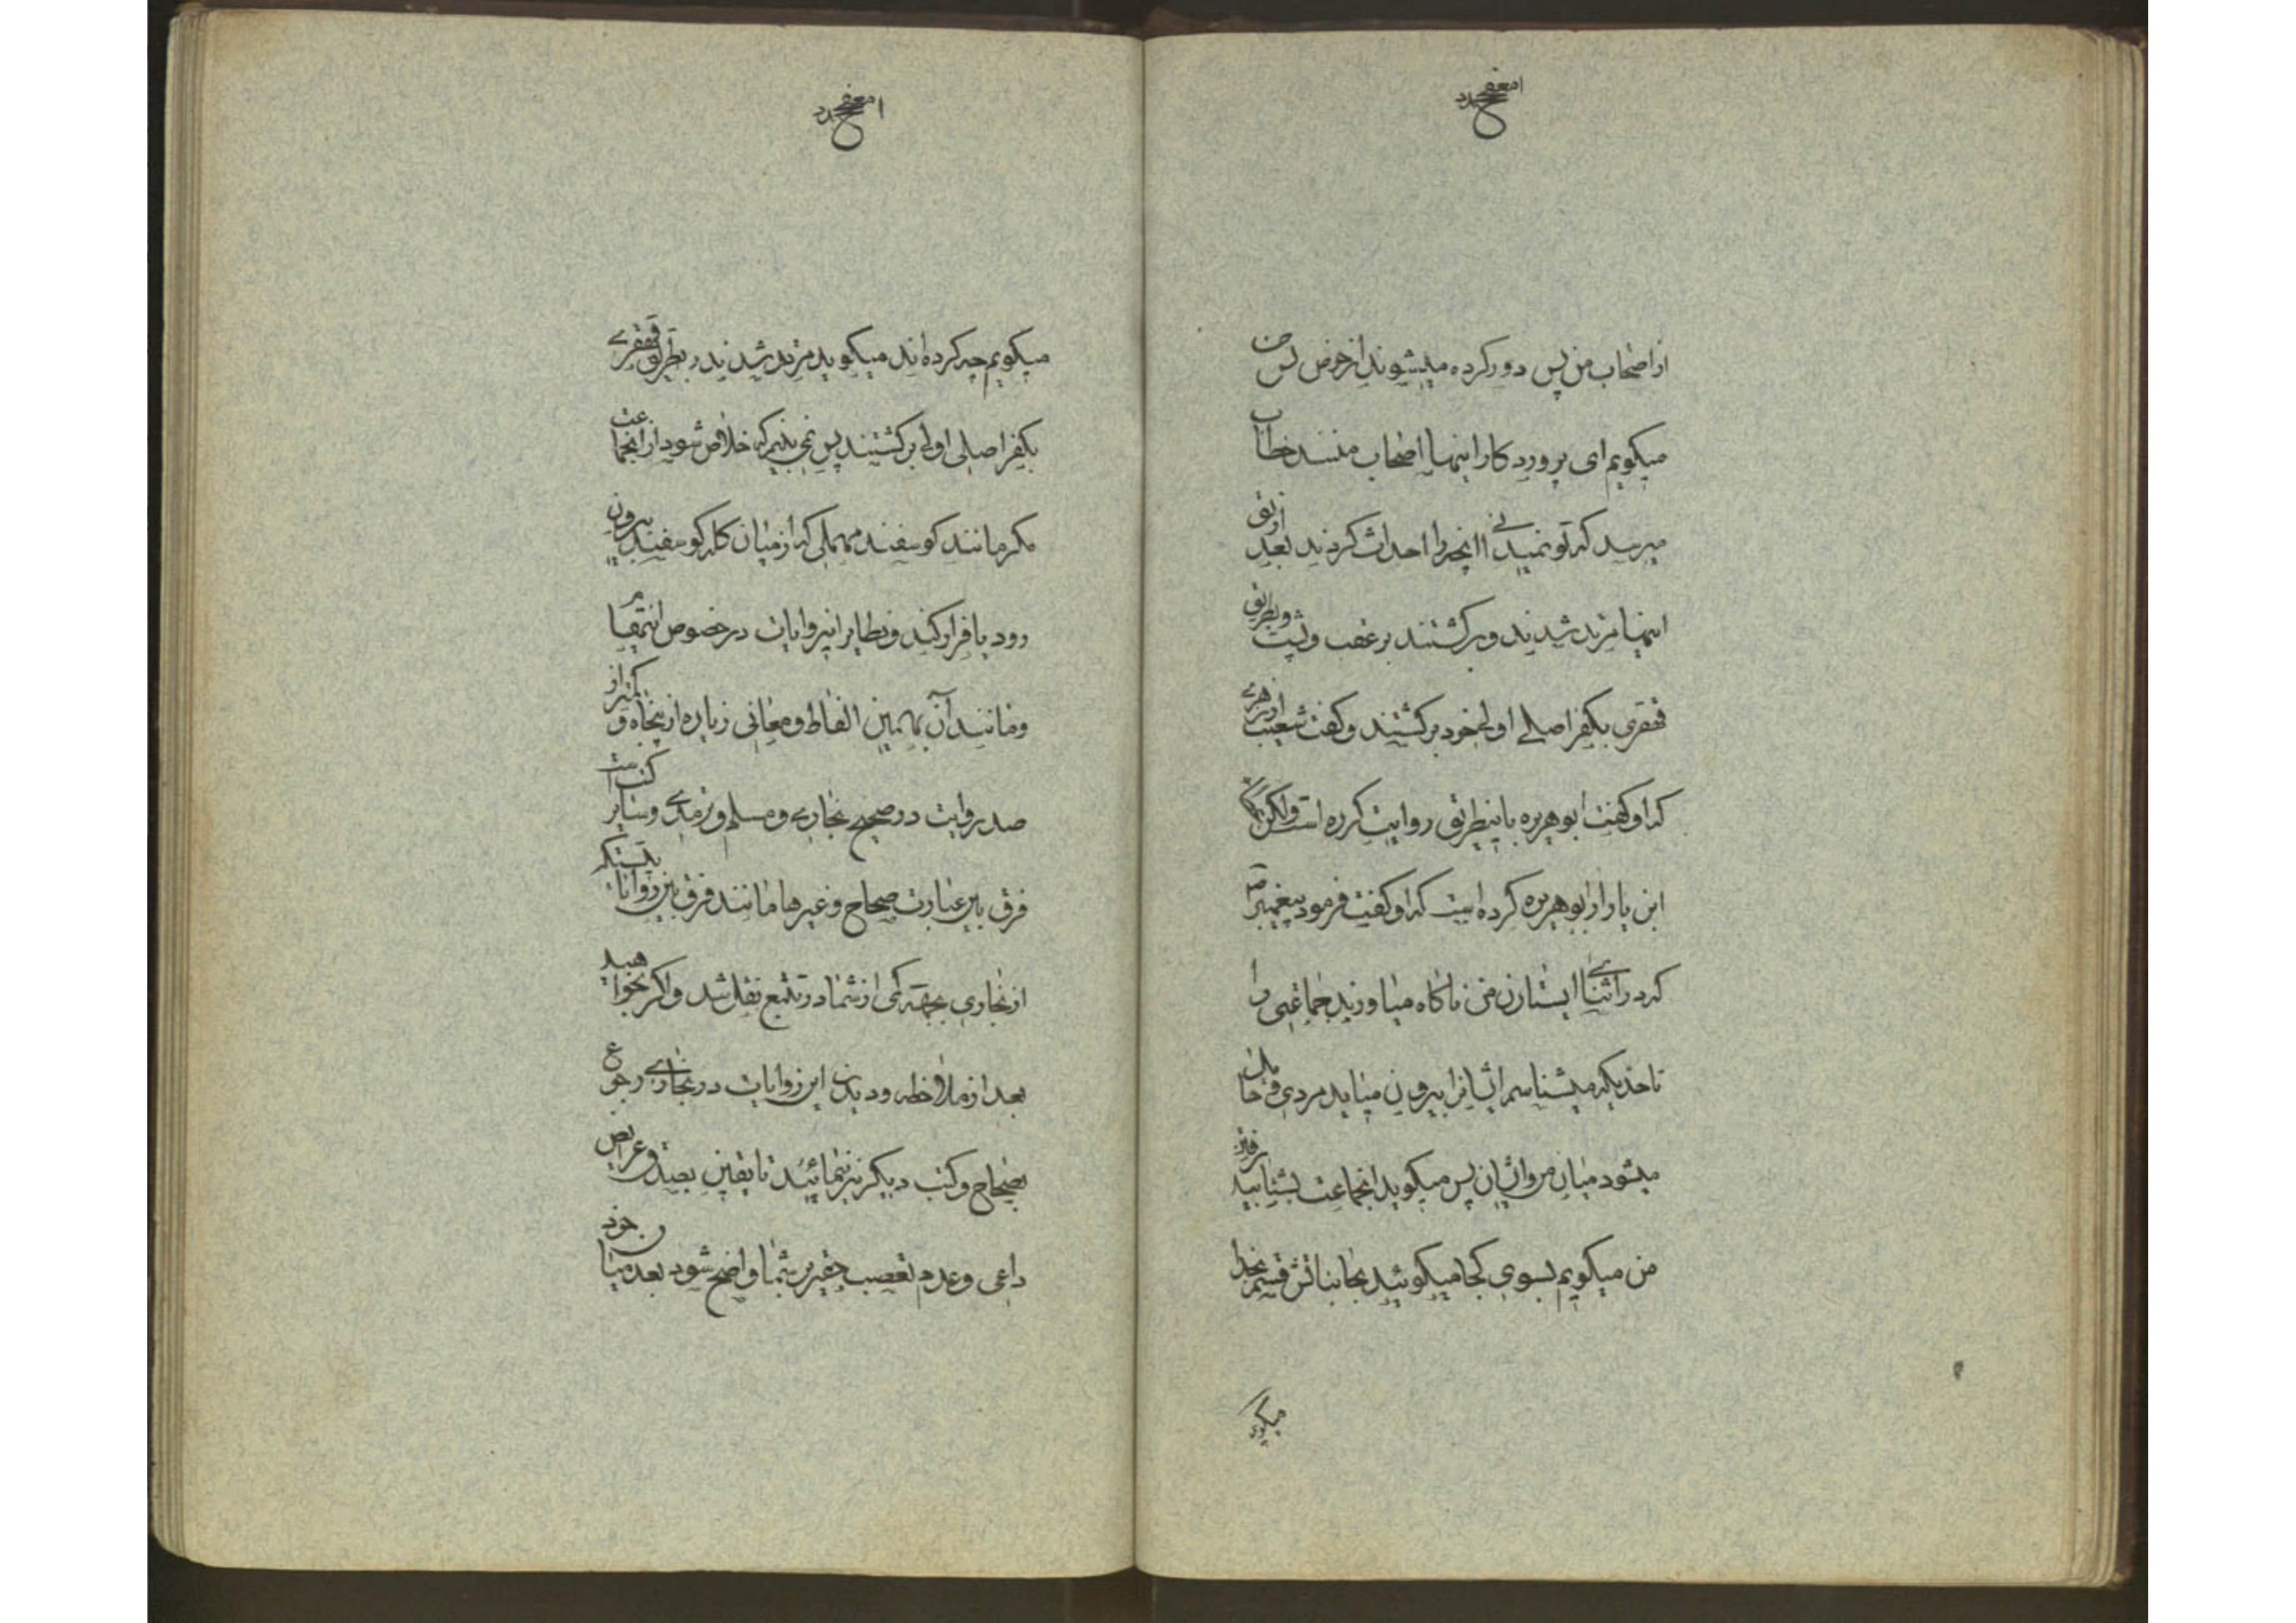 از اصحاب من پس دور کرده میشوند از حوض پس من
میکویم ای پروردکار اینها اصحاب منند خطاب
میرسد که تو نمیدانی آنچه را احداث کردند بعد از تو
اینها مرتد شدند و برکشتند بر عقب و پشت و بطریق
قهقری بکفر اصلی اولی خود برکشتند و کفت شعیب از زهری
که او کفت ابوهریره باینطریق روایت کرده است ولکن
این یا را از ابوهریره کرده است که او کفت فرمود پیغمبر ص
که در اثنای ایستادن من ناکاه میاورند جماعتی را
تا حدیکه میشناسم ایشانرا بیرون میاید مردی و حایل
میشود میان من و ایشان پس میکوید بانجماعت بشتابید
من میکویم بسوی کجا میکوئید بجانب اتش قسم بخدا
میکوی
میکویم چه کرده اند میکوید مرتد شدند و بطریق قهقری
بکفر اصلی اولی برکشتند پس نمی بینم که خلاص شود از انجماعت
مکر مانند کوسفند مهملی که از میان کله کوسفند بیرون
رود یا فرار کند و نظایر این روایات در خصوص انتقام
و مانند آن بهمین الفاظ و معانی زیاده از پنجاه و کمتر از
صد روایت در صحیح بخاری و مسلم و ترمدی و سایر کتب است
فرق بین عبارت صحاح و غیرها مانند فرق بین روایات
از بخاری بجهة کمی از شما در تتبع نقل شد و اکر بخواهید
بعد از ملاحظه و دیدن این روایات در بخاری رجوع
بصحاح و کتب دیکر نیز نمائید تا یقین بصدق عرایض
داعی و عدم تعصب حقیر بر شما واضح شود بعد میان خود